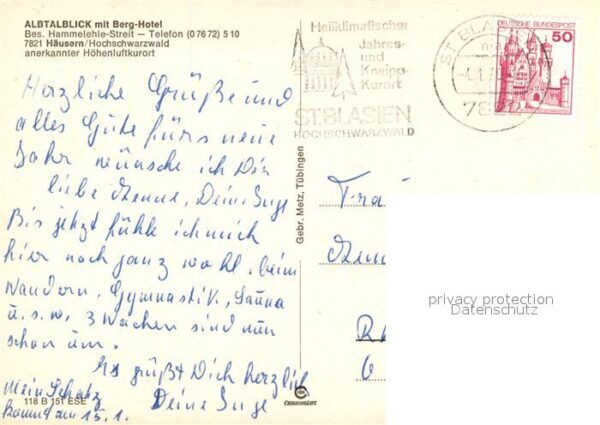 ALBTALBLICK mit Berg-Hotel
Bes. Hammelehle-Streit — Telefon (0 76 72) 5 10
7821 Häusern/Hochschwarzwald
anerkannter Höhenluftkurort
Herzliche Grüße und
alles Gute fürs neue
Jahr wünsche ich Dir
liebe Henne, Deine Inge
Bis jetzt fühle ich mich
hier noch ganz wohl, beim
Wandern, Gymnastik, Sauna
u.s.w. 3 Wochen sind nun
schon um.
Es grüßt Dich herzlich
Deine Inge
mein Schatz
kommt am 15.1.
118 B 151 ESE
Gebr. Metz, Tübingen
Heilklimatischer
Jahres-
und
Kneipp-
Kurort
ST. BLASIEN
HOCHSCHWARZWALD
ST. BLASIEN
-4.1.7
78
DEUTSCHE BUNDESPOST
50
privacy protection
Datenschutz